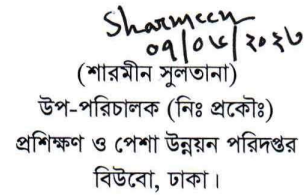 Sharmeen
০৭/০৮/২০২৩
(শারমীন সুলতানা)
উপ-পরিচালক (নিঃ প্রকৌঃ)
প্রশিক্ষণ ও পেশা উন্নয়ন পরিদপ্তর
বিউবো, ঢাকা।